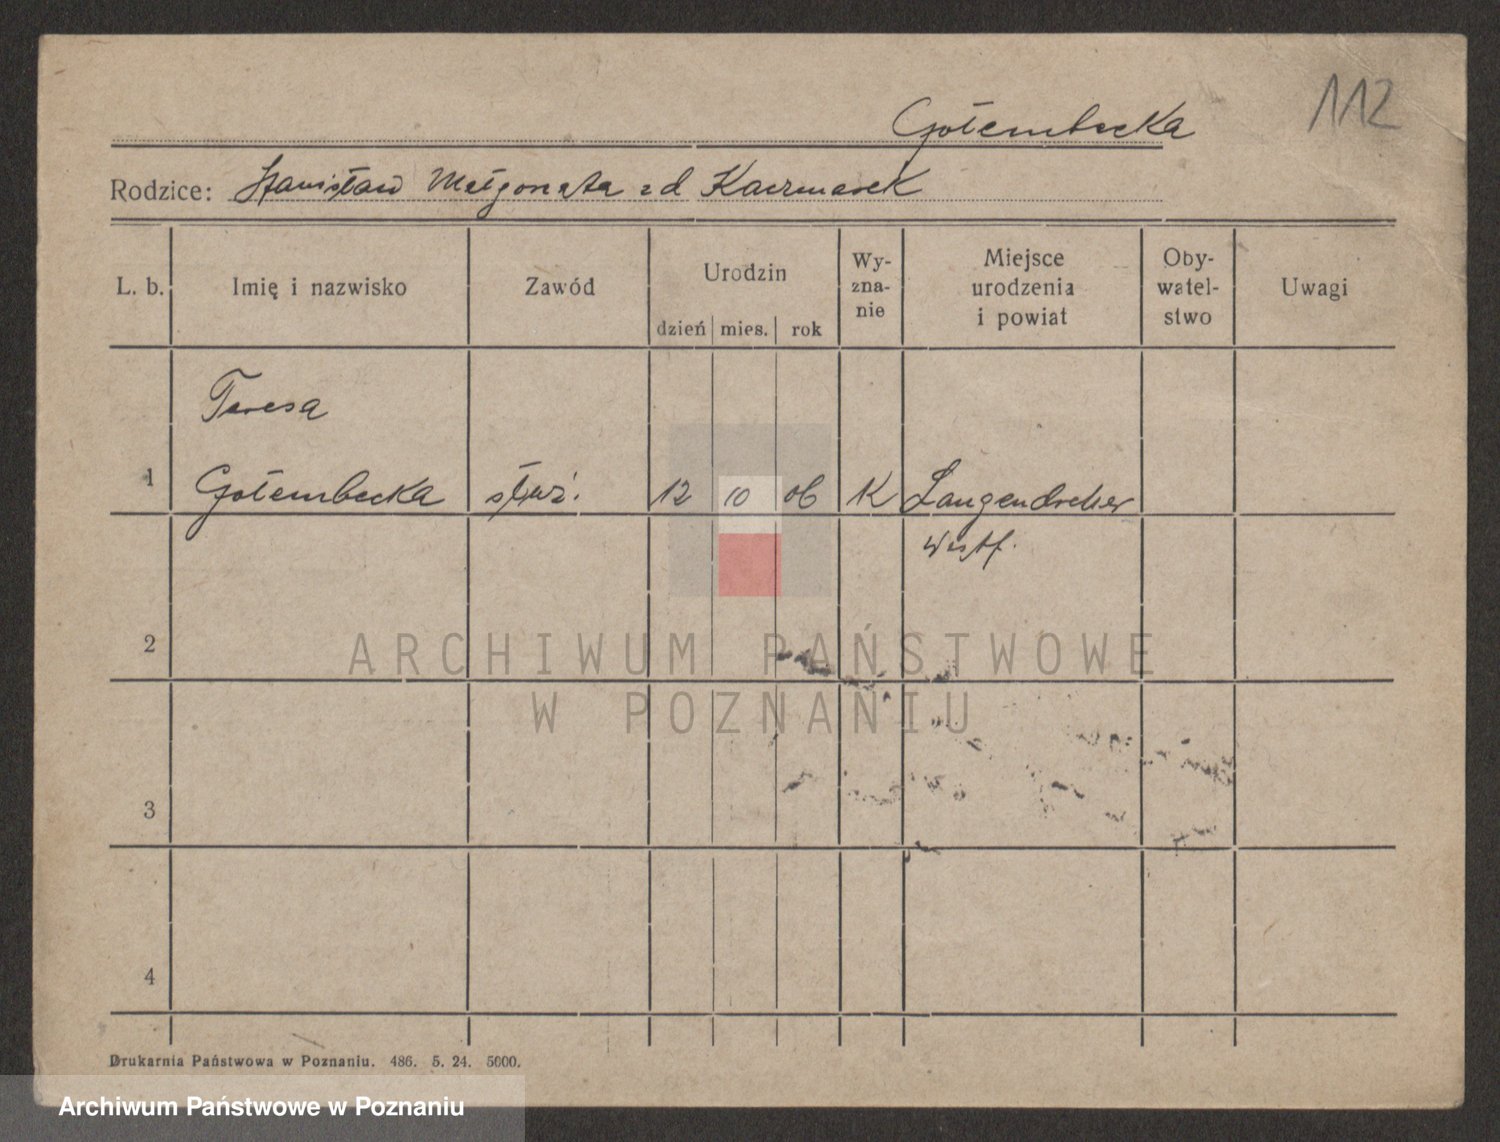 112
Gołembecka
Rodzice: Stanisław Małgorzata zd Kaczmarek
L. b.
Imię i nazwisko
Zawód
Urodzin
dzień
mies.
rok
Wy-
zna-
nie
Miejsce
urodzenia
i powiat
Oby-
watel-
stwo
Uwagi
Teresa
1 Gołembecka służ. 12 10 06 K Langendreher
Westf.
2
3
4
ARCHIWUM PAŃSTWOWE
W POZNANIU
Drukarnia Państwowa w Poznaniu. 486. 5. 24. 5000.
Archiwum Państwowe w Poznaniu